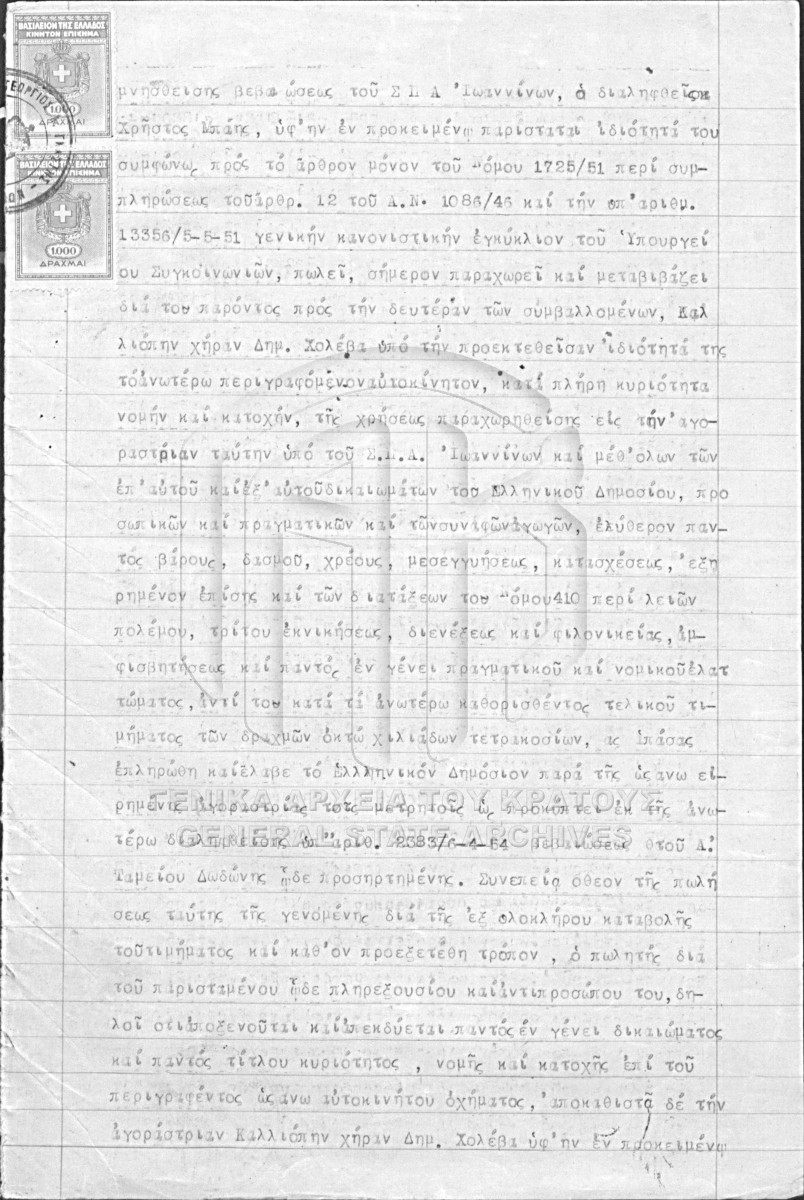 ΒΑΣΙΛΕΙΟΝ ΤΗΣ ΕΛΛΑΔΟΣ
ΚΙΝΗΤΟΝ ΕΠΙΣΗΜΑ
1.000
ΔΡΑΧΜΑΙ
ΒΑΣΙΛΕΙΟΝ ΤΗΣ ΕΛΛΑΔΟΣ
ΚΙΝΗΤΟΝ ΕΠΙΣΗΜΑ
1.000
ΔΡΑΧΜΑΙ
μνησθείσης βεβαιώσεως τοῦ Σ Ε Α Ἰωαννίνων, ὁ διαληφθεὶς
Χρῆστος Μπάης, ὑφ'ην ἐν προκειμένῳ παρίσταται ἰδιότητά του
συμφώνως πρός τό ἄρθρον μόνον τοῦ Νόμου 1725/51 περί συμ-
πληρώσεως τοῦἀρθρ. 12 τοῦ Α.Ν. 1086/46 καί τήν ὑπ'ἀριθμ.
13356/5-5-51 γενικήν κανονιστικήν ἐγκύκλιον τοῦ Ὑπουργεί
ου Συγκοινωνιῶν, πωλεῖ, σήμερον παραχωρεῖ καί μεταβιβάζει
διά του παρόντος πρός τήν δευτέραν τῶν συμβαλλομένων, Καλ
λιόπην χήραν Δημ. Χολέβα ὑπό τήν προεκτεθεῖσαν ἰδιότητά της
τόἀνωτέρω περιγραφόμενοναὐτοκίνητον, κατά πλήρη κυριότητα
νομήν καί κατοχήν, τῆς χρήσεως παραχωρηθείσης εἰς τήν ἀγο-
ράστριαν ταύτην ὑπό τοῦ Σ.Ε.Α. Ἰωαννίνων καί μέθ'ὅλων τῶν
ἐπ'αὐτοῦ καίἐξ'αὐτοῦδικαιωμάτων του Ἑλληνικοῦ Δημοσίου, προ
σωπικῶν καί πραγματικῶν καί τῶνσυναφῶνἀγωγῶν, ἐλύθερον παν-
τός βάρους, δασμοῦ, χρέους, μεσεγγυήσεως, κατασχέσεως, ἐξῃ
ρημένον ἐπίσης καί τῶν διατάξεων του Νόμου410 περί λειῶν
πολέμου, τρίτου ἐκνικήσεως, διενέξεως καί φιλονικείας, ἀμ-
φισβητήσεως καί παντός ἐν γένει πραγματικοῦ καί νομικοῦἐλατ
τώματος, ἀντί του κατά τά ἀνωτέρω καθορισθέντος τελικοῦ τι-
μήματος τῶν δραχμῶν ὀκτώ χιλιάδων τετρακοσίων, ἅς ἁπάσας
ἐπληρώθη καίἔλαβε τό Ἑλληνικόν Δημόσιον παρά τῆς ὡςανω εἰ-
ρημένης ἀγοραστρίας τοῖς μετρητοῖς ὡς προκύπτει ἐκ τῆς ἀνω-
τέρω διαληφθείσης ὑπ'ἀριθ. 2383/6-4-54 βεβαιώσεως τοῦ Α.
Ταμείου Δωδώνης ᾧδε προσηρτημένης. Συνεπείᾳ ὅθεον τῆς πωλή
σεως ταύτης τῆς γενομένης διά τῆς ἐξ ὁλοκλήρου καταβολῆς
τοῦτιμήματος καί καθ'ὅν προεξετέθη τρόπον, ὁ πωλητής διά
τοῦ παρισταμένου ᾧδε πληρεξουσίου καίἀντιπροσώπου του, δη-
λοῖ ὅτιἀποξενοῦται καίἀπεκδύεται παντός ἐν γένει δικαιώματος
καί παντός τίτλου κυριότητος, νομῆς καί κατοχῆς ἐπί τοῦ
περιγραφέντος ὡςανω αὐτοκινήτου ὀχήματος, ἀποκαθιστᾶ δέ τήν
ἀγοράστριαν Καλλιόπην χήραν Δημ. Χολέβα ὑφ'ην ἐν προκειμένῳ
ΓΕΝΙΚΑ ΑΡΧΕΙΑ ΤΟΥ ΚΡΑΤΟΥΣ
GENERAL STATE ARCHIVES